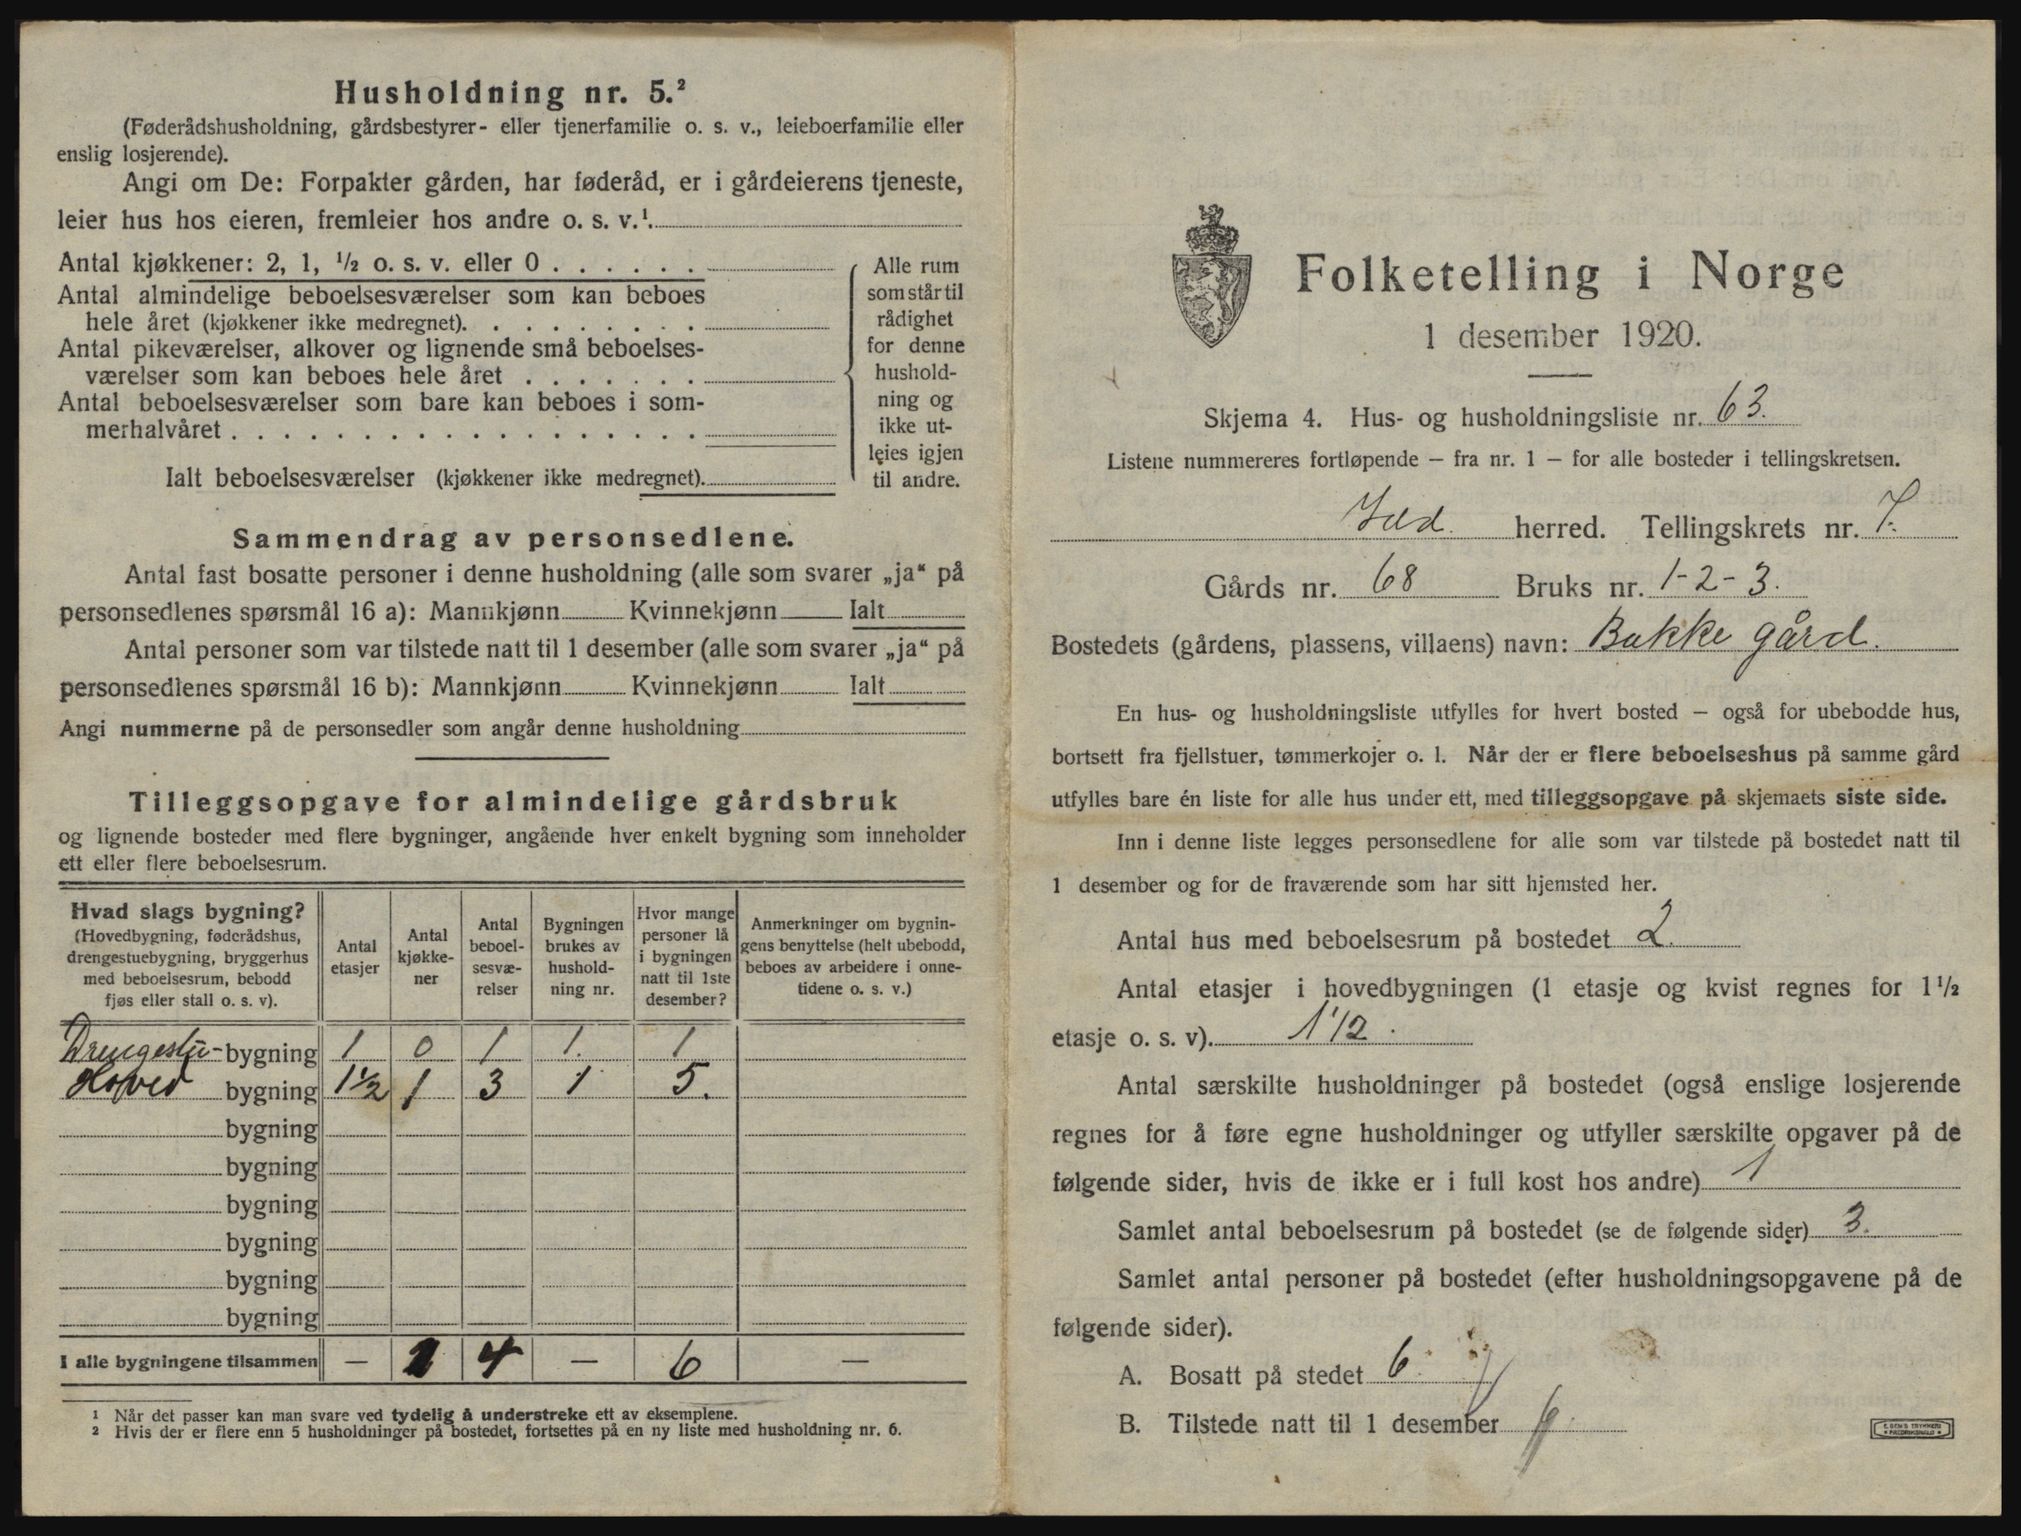 Husholdning nr. 5.²
(Føderådshusholdning, gårdsbestyrer- eller tjenerfamilie o. s. v., leieboerfamilie eller
enslig losjerende).
Angi om De: Forpakter gården, har føderåd, er i gårdeierens tjeneste,
leier hus hos eieren, fremleier hos andre o. s. v.¹.
Antal kjøkkener: 2, 1, ½ o. s. v. eller 0 . . . . . .
Antal almindelige beboelsesværelser som kan beboes
hele året (kjøkkener ikke medregnet). . . . . . . . .
Antal pikeværelser, alkover og lignende små beboelses-
værelser som kan beboes hele året . . . . . . .
Antal beboelsesværelser som bare kan beboes i som-
merhalvåret . . . . . . . . . . . . . . . . . .
Ialt beboelsesværelser (kjøkkener ikke medregnet).
Alle rum
som står til
rådighet
for denne
hushold-
ning og
ikke ut-
leies igjen
til andre.
Sammendrag av personsedlene.
Antal fast bosatte personer i denne husholdning (alle som svarer „ja“ på
personsedlenes spørsmål 16 a): Mannkjønn Kvinnekjønn Ialt
Antal personer som var tilstede natt til 1 desember (alle som svarer „ja“ på
personsedlenes spørsmål 16 b): Mannkjønn Kvinnekjønn Ialt
Angi nummerne på de personsedler som angår denne husholdning
Tilleggsopgave for almindelige gårdsbruk
og lignende bosteder med flere bygninger, angående hver enkelt bygning som inneholder
ett eller flere beboelsesrum.
Hvad slags bygning?
(Hovedbygning, føderådshus,
drengestuebygning, bryggerhus
med beboelsesrum, bebodd
fjøs eller stall o. s. v).
Antal
etasjer
Antal
kjøkke-
ner
Antal
beboel-
sesvæ-
relser
Bygningen
brukes av
hushold-
ning nr.
Hvor mange
personer lå
i bygningen
natt til 1ste
desember?
Anmerkninger om bygnin-
gens benyttelse (helt ubebodd,
beboes av arbeidere i onne-
tidene o. s. v.)
Drengestu- bygning 1 0 1 1. 1
Hoved bygning 1½ 1 3 1 5.
bygning
bygning
bygning
bygning
bygning
bygning
I alle bygningene tilsammen — 1 4 — 6 —
¹ Når det passer kan man svare ved tydelig å understreke ett av eksemplene.
² Hvis der er flere enn 5 husholdninger på bostedet, fortsettes på en ny liste med husholdning nr. 6.
Folketelling i Norge
1 desember 1920.
Skjema 4. Hus- og husholdningsliste nr. 63.
Listene nummereres fortløpende – fra nr. 1 – for alle bosteder i tellingskretsen.
Idd. herred. Tellingskrets nr. 7.
Gårds nr. 68 Bruks nr. 1-2-3.
Bostedets (gårdens, plassens, villaens) navn: Bakke gård.
En hus- og husholdningsliste utfylles for hvert bosted – også for ubebodde hus,
bortsett fra fjellstuer, tømmerkojer o. l. Når der er flere beboelseshus på samme gård
utfylles bare én liste for alle hus under ett, med tilleggsopgave på skjemaets siste side.
Inn i denne liste legges personsedlene for alle som var tilstede på bostedet natt til
1 desember og for de fraværende som har sitt hjemsted her.
Antal hus med beboelsesrum på bostedet 2.
Antal etasjer i hovedbygningen (1 etasje og kvist regnes for 1½
etasje o. s. v). 1 1/2.
Antal særskilte husholdninger på bostedet (også enslige losjerende
regnes for å føre egne husholdninger og utfyller særskilte opgaver på de
følgende sider, hvis de ikke er i full kost hos andre) 1
Samlet antal beboelsesrum på bostedet (se de følgende sider) 3.
Samlet antal personer på bostedet (efter husholdningsopgavene på de
følgende sider).
A. Bosatt på stedet 6.
B. Tilstede natt til 1 desember 6.